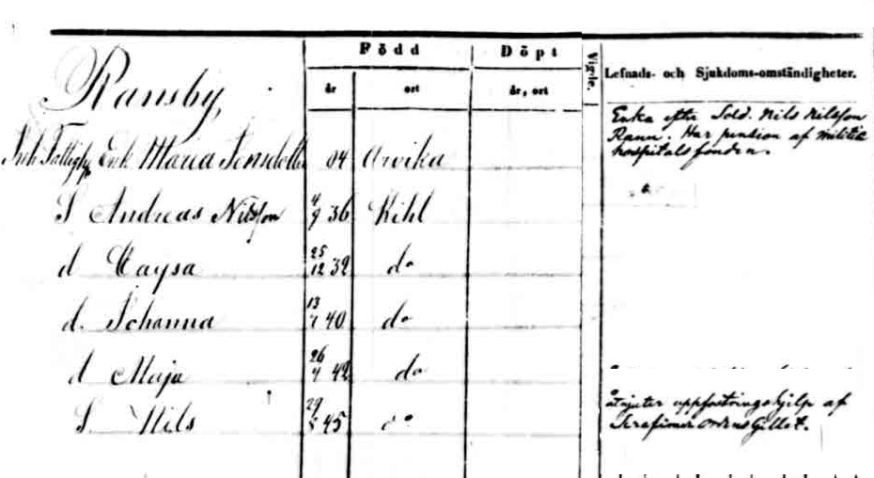 Född Döpt Vigde. Lefnads- och Sjukdoms-omständigheter.
år ort år, ort
Ransby,
Enka efter Sold. Nils Nilsson
Rann. Har pension af militie
hospitals fonden.
Inh Fattighj. Enk. Maria Jonsdotter 04 Arvika
S Andreas Nilsson 4/9 36 Kihl
d Caysa 25/12 39 do
d. Johanna 13/7 40 do
d Maja 26/4 42 do
S Nils 29 45 do
åtnjuter uppfostringshjelp af
Serafimer Ordens Gillet.